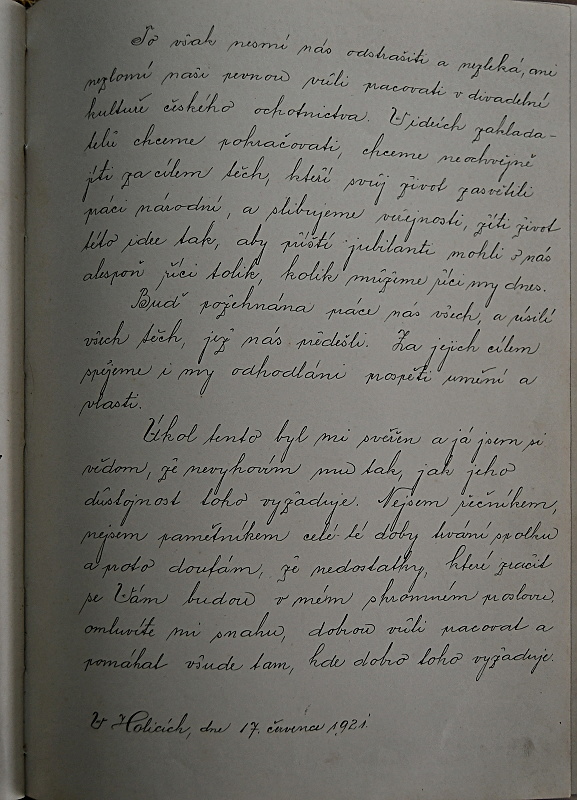 To však nesmí nás odstrašiti a nezleká, ani
nezlomí naši pevnou vůli pracovati v divadelní
kultuře českého ochotnictva. V ideích zaklada-
telů chceme pokračovati, chceme neochvějně
jíti za cílem těch, kteří svůj život zasvětili
práci národní, a slibujeme veřejnosti, žíti život
této idee tak, aby příští jubilanti mohli o nás
alespoň říci tolik, kolik můžeme říci my dnes.
Buď požehnána práce nás všech, a úsilí
všech těch, jež nás předešli. Za jejich cílem
spějeme i my odhodláni prospěti umění a
vlasti.
Úkol tento byl mi svěřen a já jsem si
vědom, že nevyhovím mu tak, jak jeho
důstojnost toho vyžaduje. Nejsem řečníkem,
nejsem pamětníkem celé té doby trvání spolku
a proto doufám, že nedostatky, které zračit
se Vám budou v mém skromném proslovu
omluvíte mi snahu, dobrou vůli pracovat a
pomáhat všude tam, kde dobro toho vyžaduje.
V Holicích, dne 17. července 1921.